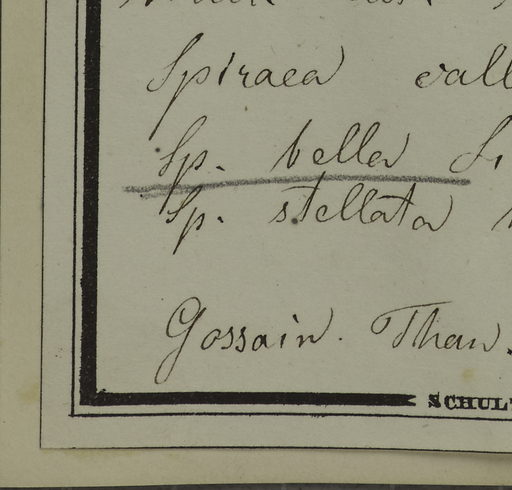 Spiraea vall
Sp. bella Si
Sp. stellata
Gossain. Than.
SCHULT